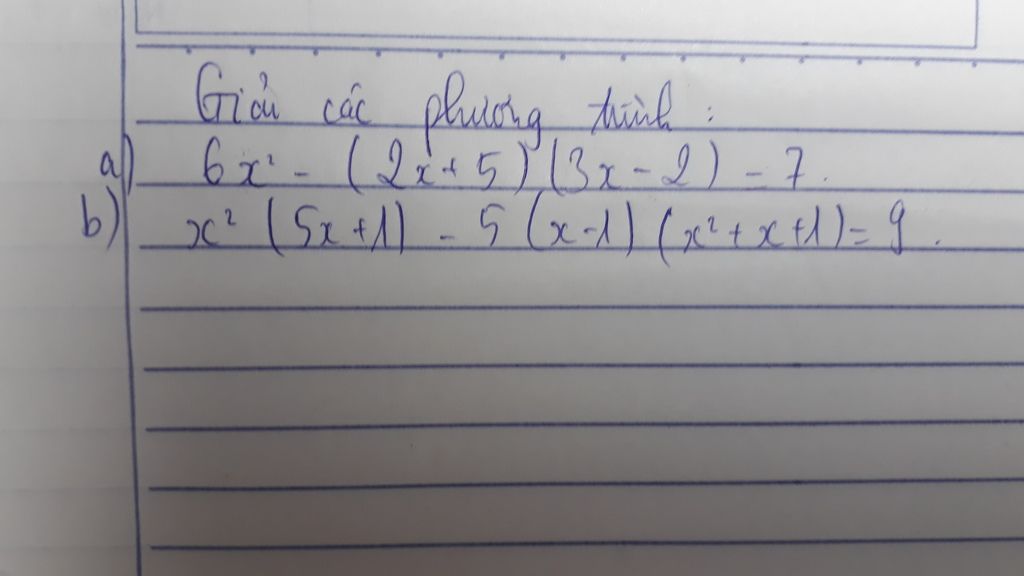 Giải các phương trình :
a) 6x² - (2x + 5) (3x - 2) = 7.
b) x² (5x + 1) - 5 (x - 1) (x² + x + 1) = 9.